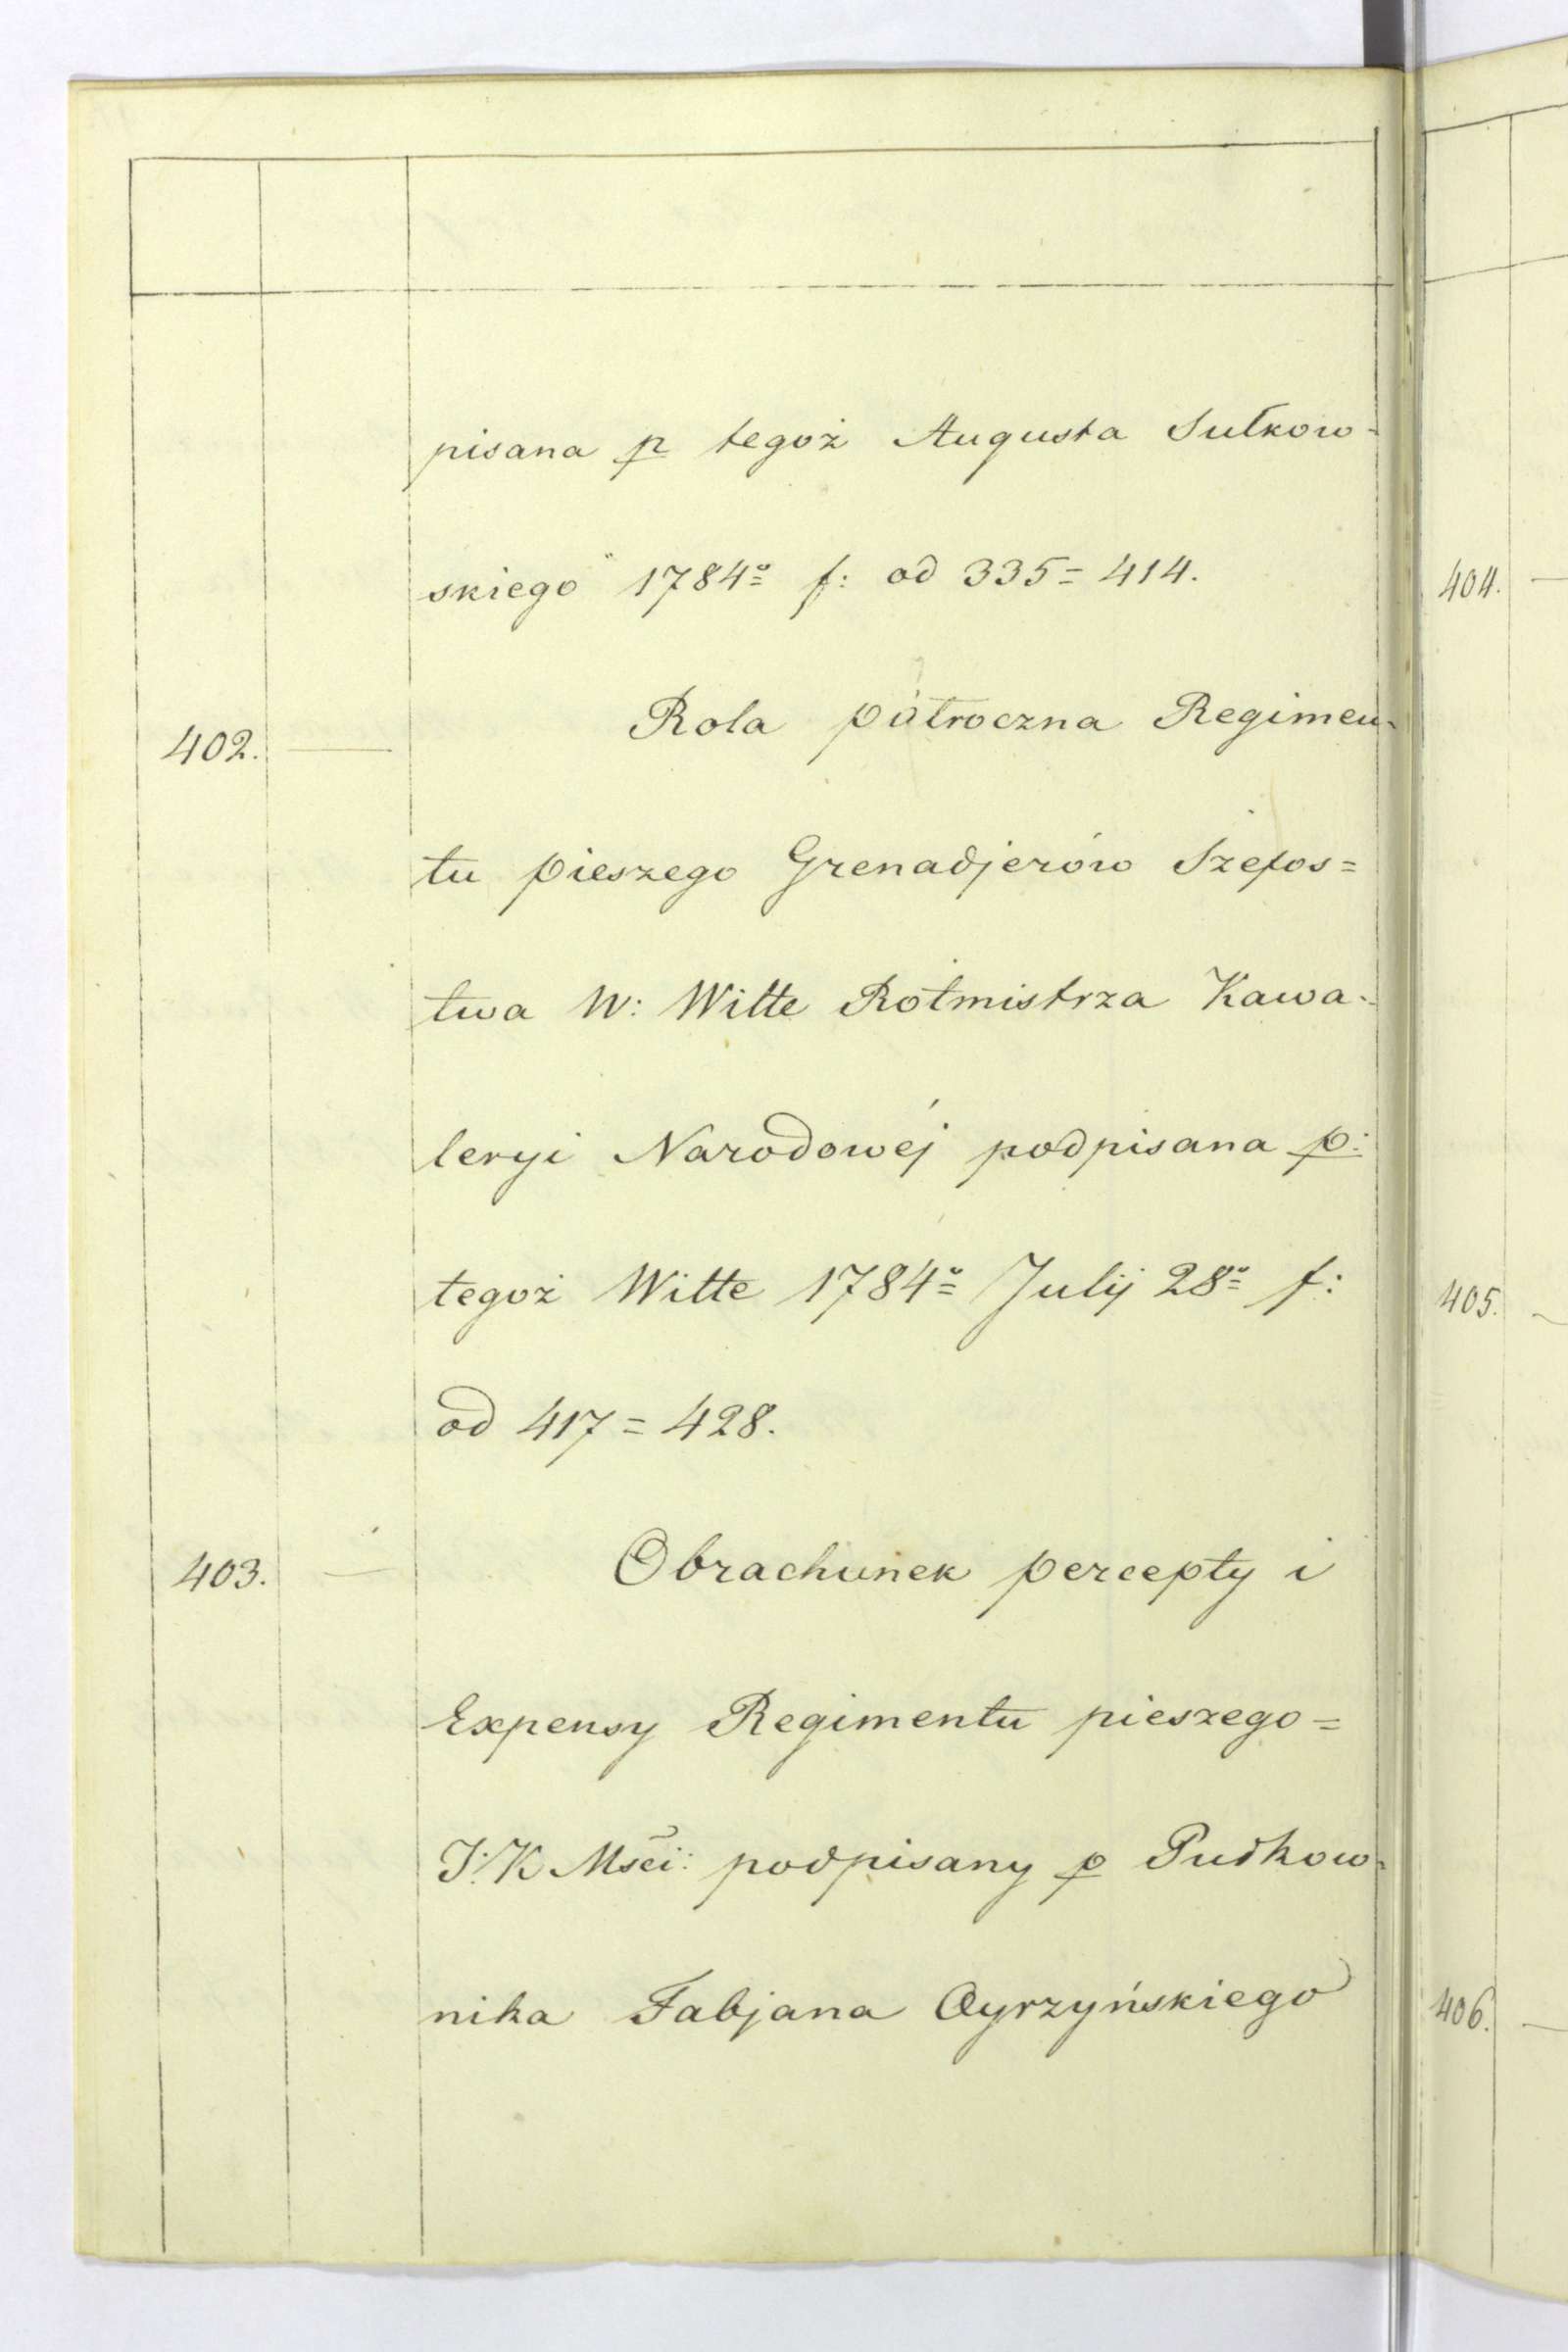 pisana p tegoż Augusta Sułkow-
skiego" 1784º f: od 335=414.
402. — Rola półroczna Regimen-
tu pieszego Grenadjerów Szefos=
twa W: Witte Rotmistrza Kawa-
leryi Narodowéj podpisana p:
tegoż Witte 1784º Julij 28º f:
od 417=428.
403. — Obrachunek percepty i
Expensy Regimentu pieszego=
J: K Mści: podpisany p Pułkow-
nika Fabjana Oyrzyńskiego
404. —
405. —
406. —